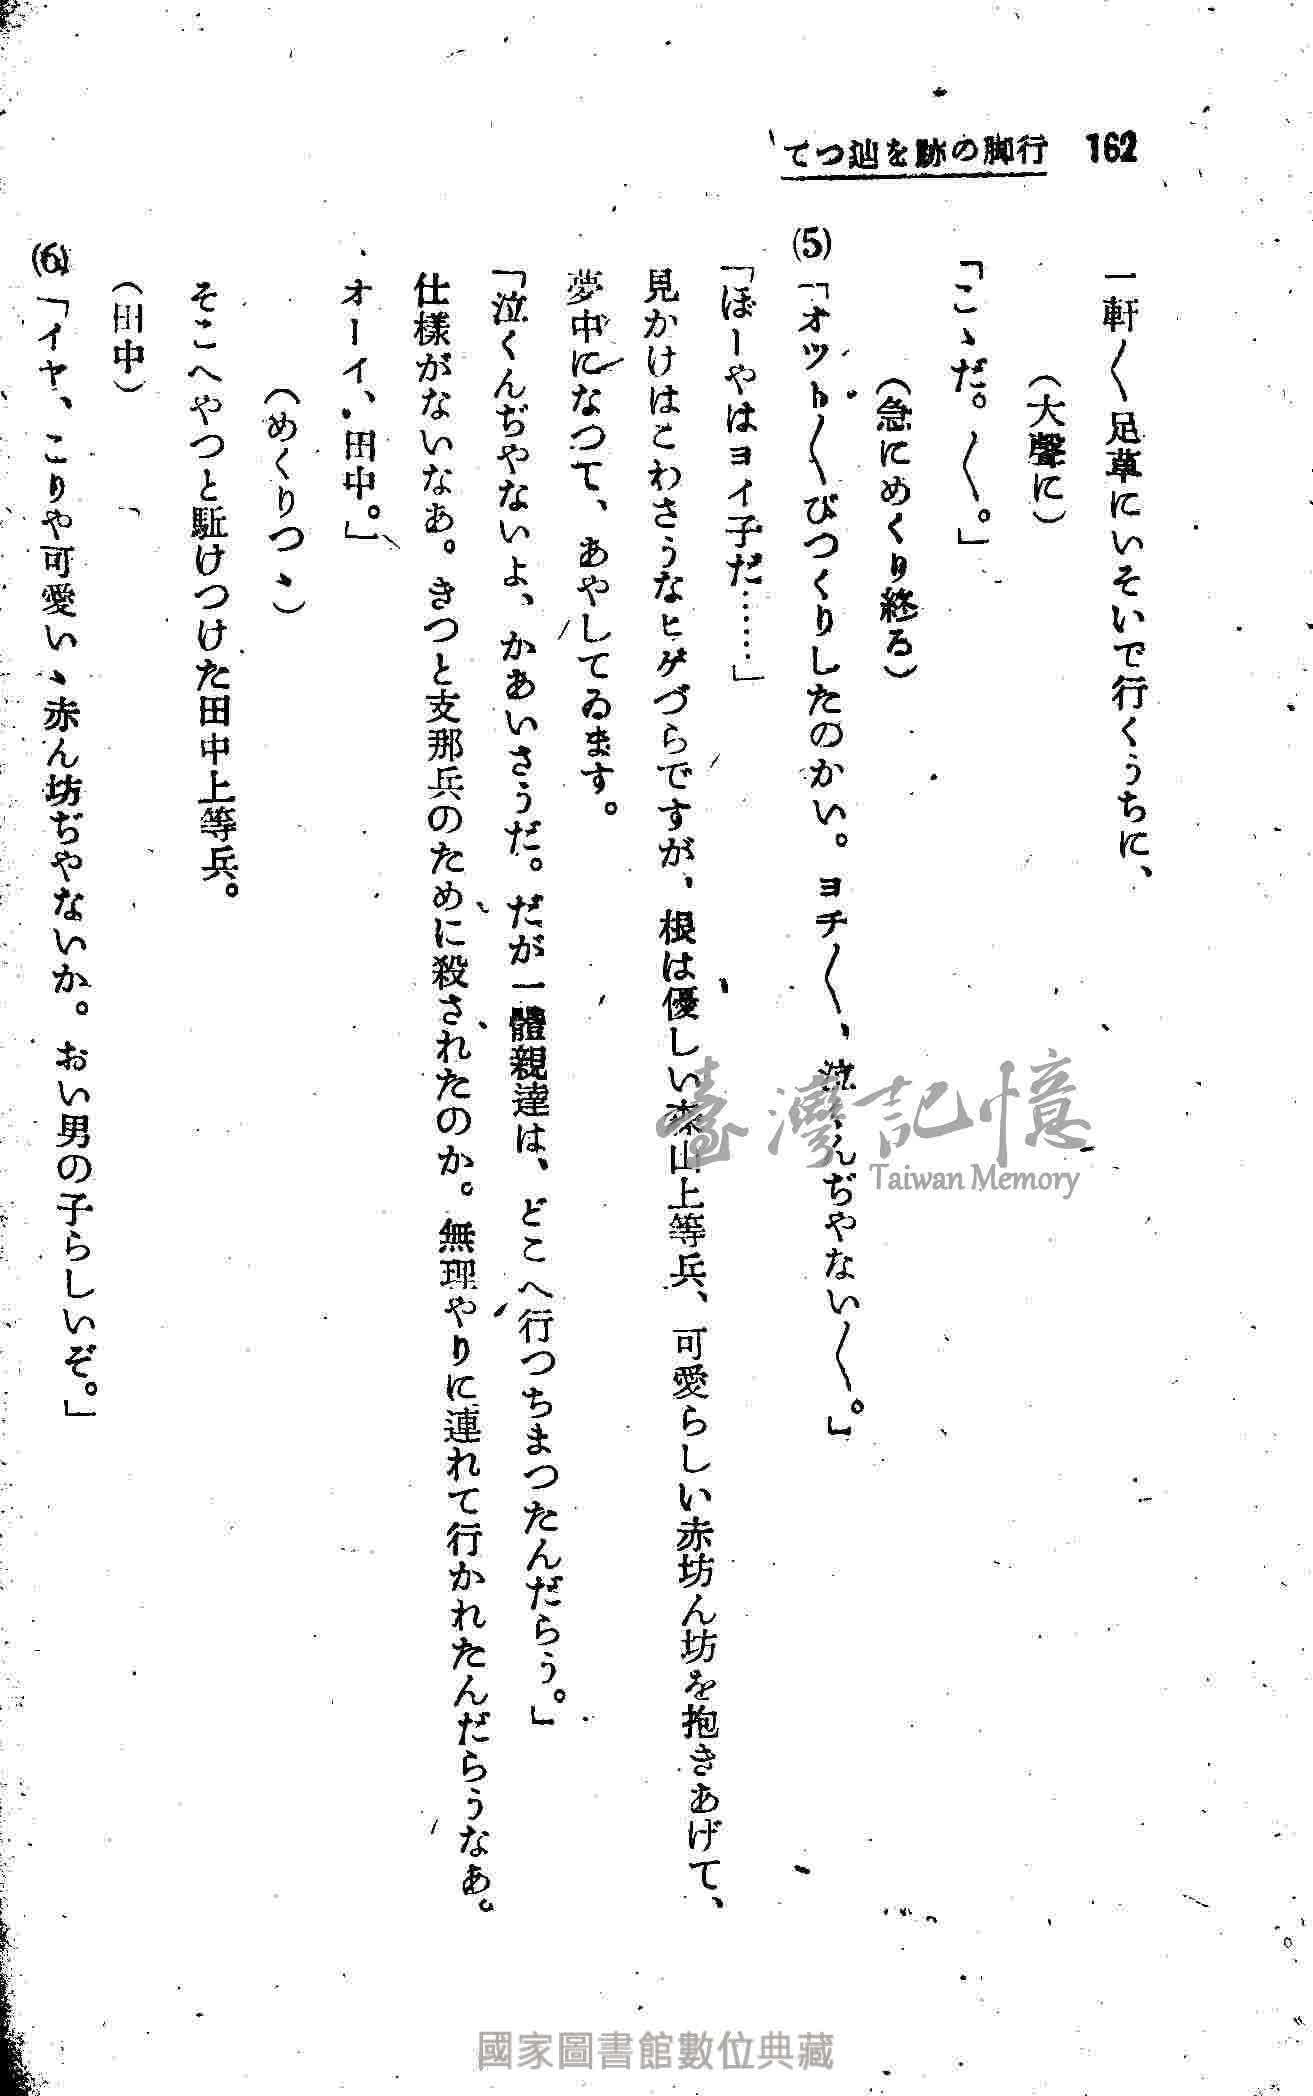 162 行脚の跡を辿つて
一軒〱足草にいそいで行くうちに、
（大聲に）
「こゝだ。〱。」
（急にめくり終る）
(5)「オツト〱びつくりしたのかい。ヨチ〱、泣くんぢやない〱。」
「ぼーやはヨイ子だ……」
見かけはこわさうなヒゲづらですが、根は優しい森山上等兵、可愛らしい赤坊ん坊を抱きあげて、
夢中になつて、あやしてゐます。
「泣くんぢやないよ、かあいさうだ。だが一體親達は、どこへ行つちまつたんだらう。」
仕様がないなあ。きつと支那兵のために殺されたのか。無理やりに連れて行かれたんだらうなあ。
オーイ、田中。」
（めくりつゝ）
そこへやつと駈けつけた田中上等兵。
（田中）
(6)「イヤ、こりや可愛いゝ赤ん坊ぢやないか。おい男の子らしいぞ。」
臺灣記憶
Taiwan Memory
國家圖書館數位典藏